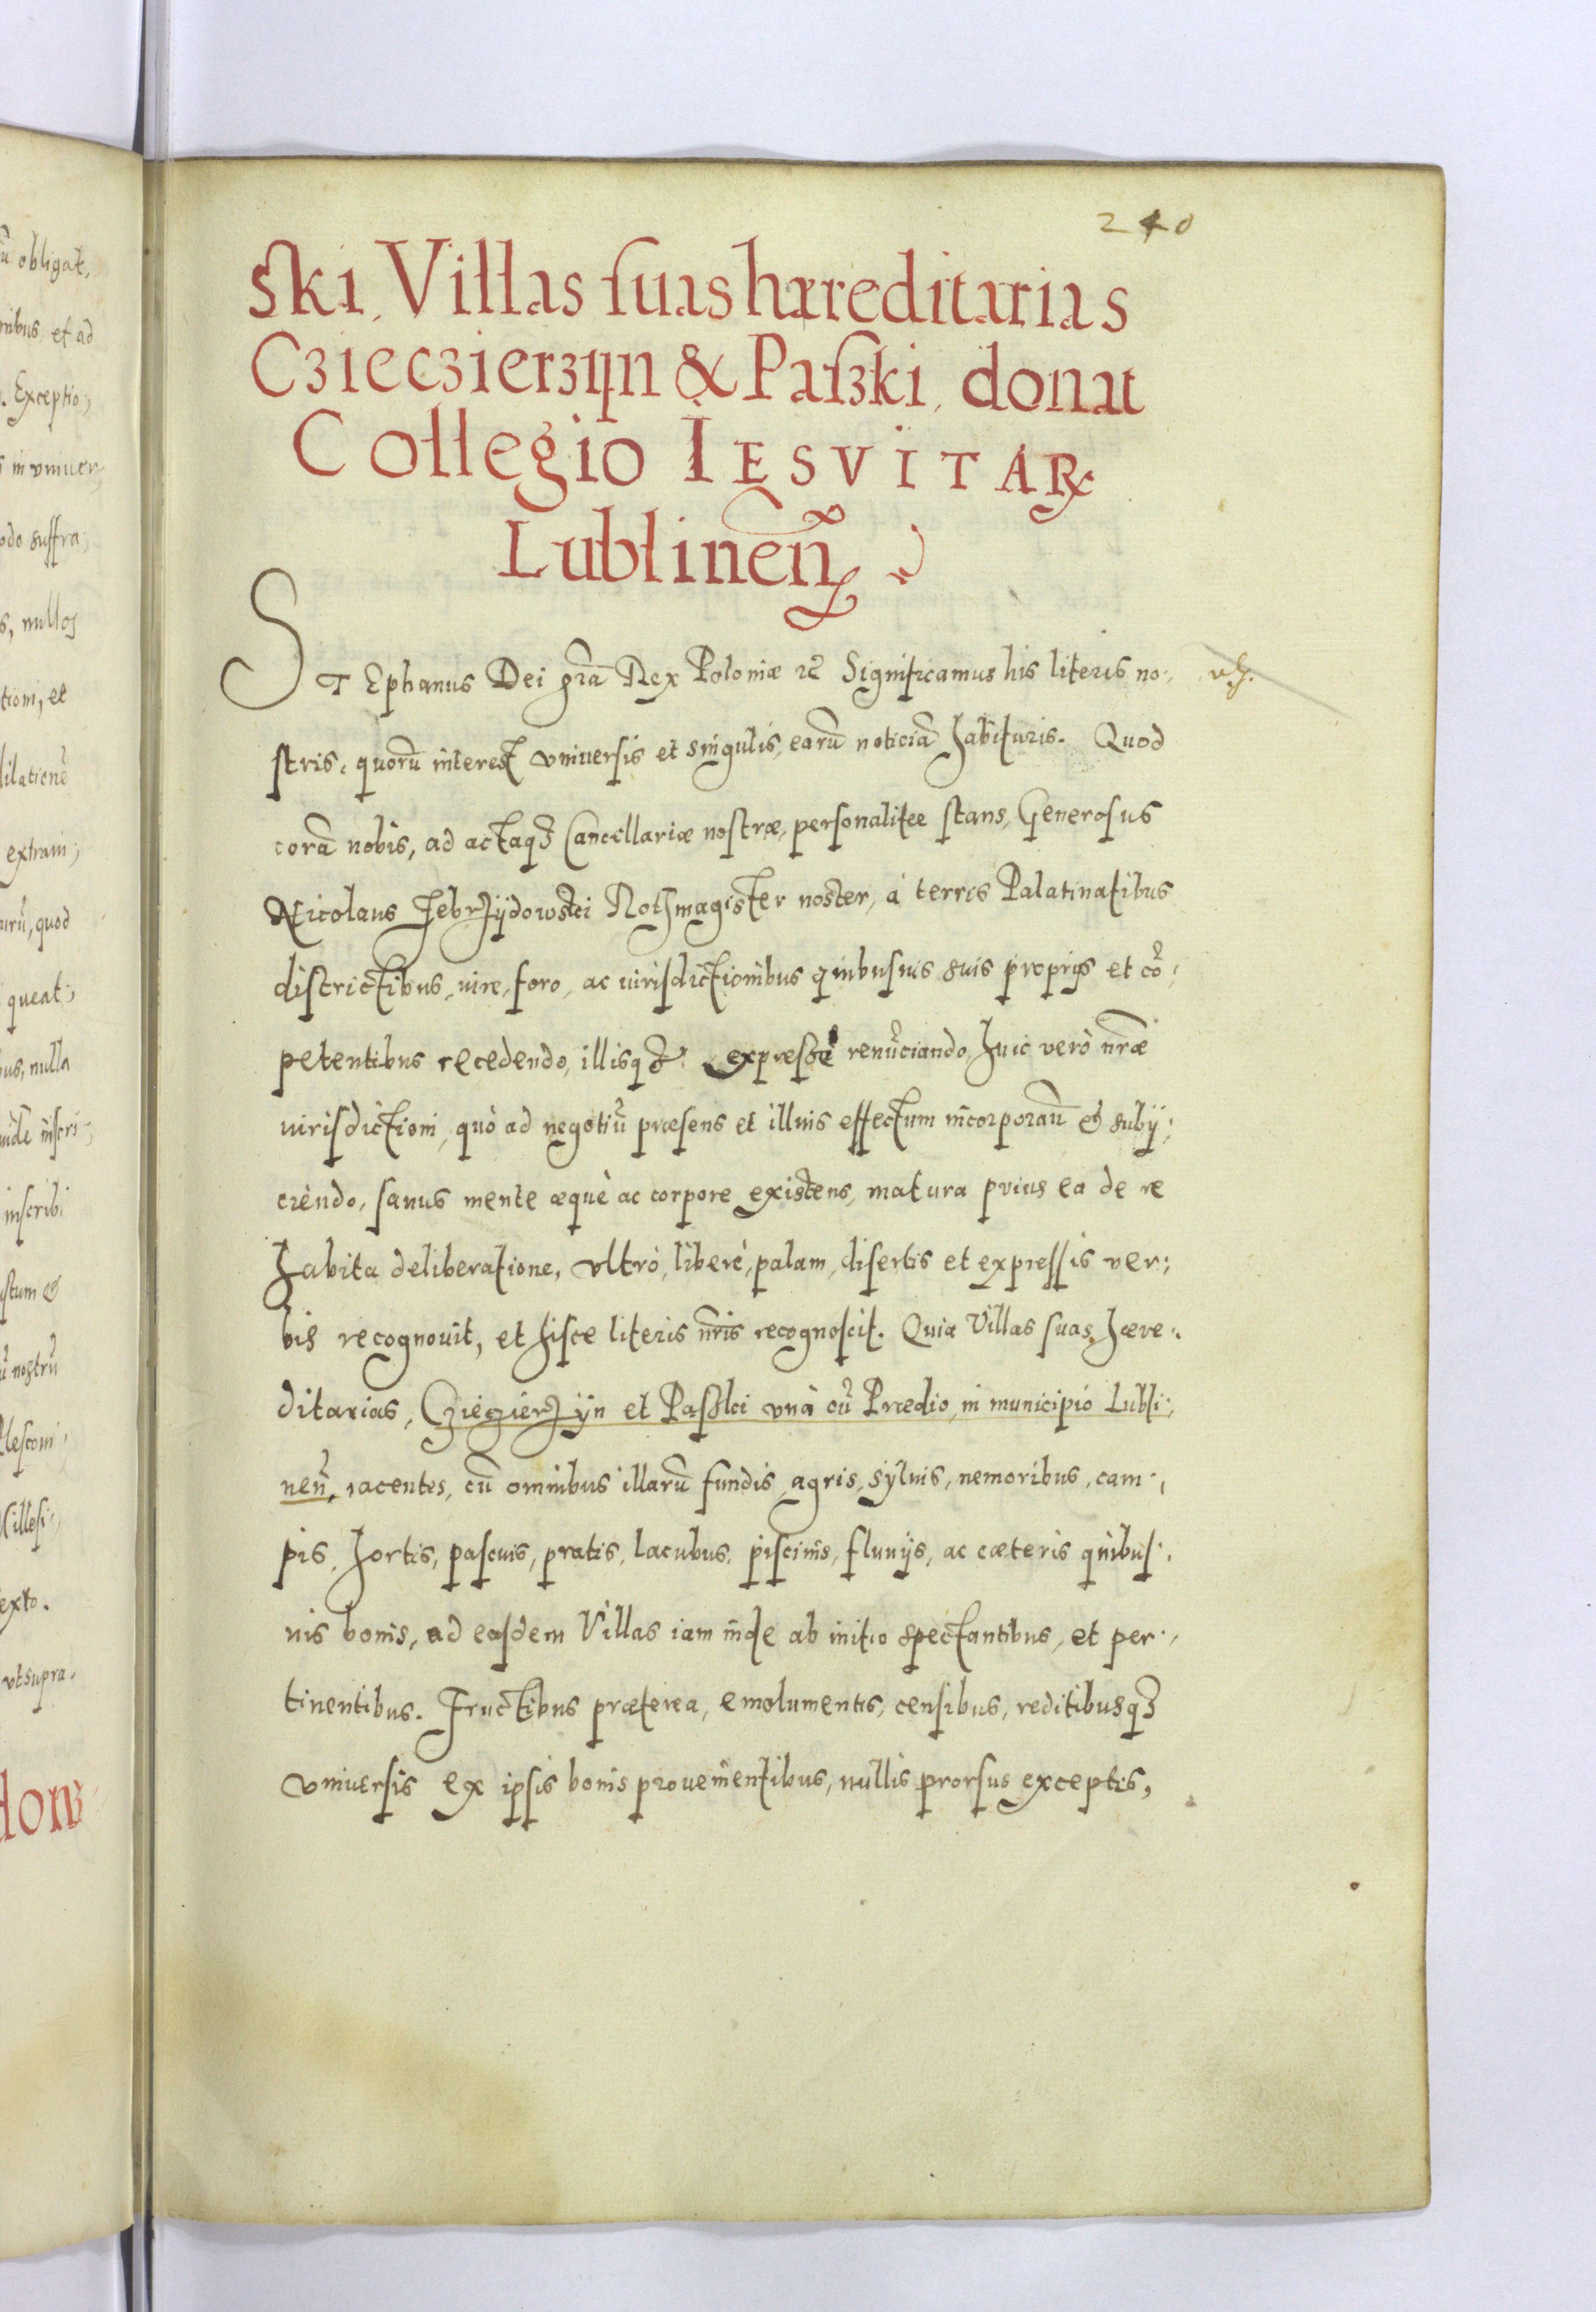 240
ski, Villas suas hæreditarias
Czieczierzÿn & Paszki, donat
Collegio IESVITAR
Lublineñ
STEphanus Dei grã Rex Poloniæ rc̃ Significamus his literis no-
stris, quorũ interest vniuersis et singulis, earũ noticiã habituris. Quod
corã nobis, ad actaq3 Cancellariæ nostræ, personalitee stans, Generosus
Nicolaus Zebrzÿdowski Rothmagister noster, á terris Palatinatibus
districtibus, iure, foro, ac iurisdictionibus quibusuis suis proprijs et cõ-
petentibus recedendo, illisq3 expressè renũciando, huic verò nr̃æ
iurisdictioni, quò ad negotiũ præsens et illius effectum incorporañ & subij-
ciendo, sanus mente æquè ac corpore existens, matura prius ea de re
habita deliberatione, vltrò, liberè, palam, disertis et expressis ver-
bis recognouit, et hisce literis nr̃is recognoscit. Quia Villas suas hære-
ditarias, Cziecierzÿn et Paszki vnà cũ Prædio, in municipio Lubli-
neñ, iacentes, cũ omnibus illarũ fundis, agris, sÿluis, nemoribus, cam-
pis, hortis, pascuis, pratis, lacubus, piscinis, fluuijs, ac cæteris quibus-
uis bonis, ad easdem Villas iam inde ab initio spectantibus, et per-
tinentibus. Fructibus præterea, emolumentis, censibus, reditibusq3
vniuersis ex ipsis bonis prouenientibus, nullis prorsus exceptis,